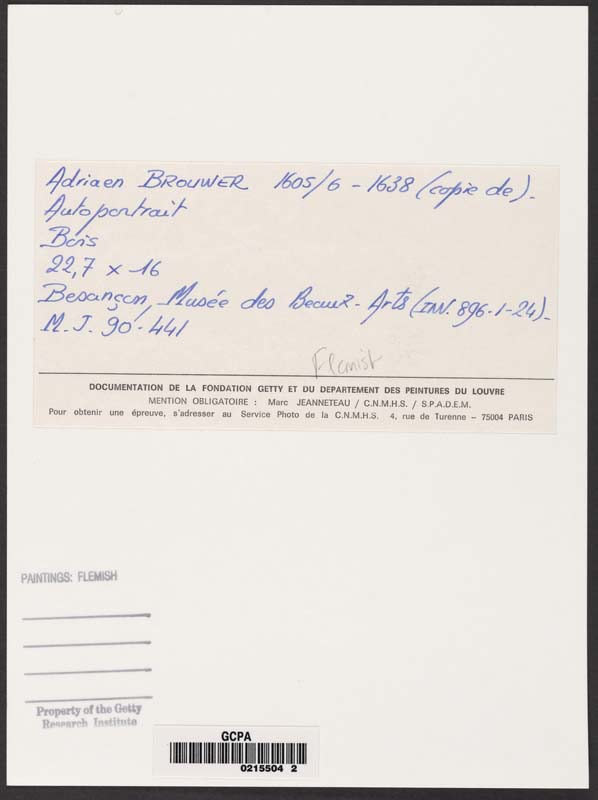 Adriaen BROUWER 1605/6 - 1638 (copie de)-
Autoportrait
Bois
22,7 x 16
Besançon, Musée des Beaux-Arts (INV. 896-1-24)-
M.J. 90-441
Flemish
DOCUMENTATION DE LA FONDATION GETTY ET DU DEPARTEMENT DES PEINTURES DU LOUVRE
MENTION OBLIGATOIRE : Marc JEANNETEAU / C.N.M.H.S. / S.P.A.D.E.M.
Pour obtenir une épreuve, s'adresser au Service Photo de la C.N.M.H.S. 4, rue de Turenne – 75004 PARIS
PAINTINGS: FLEMISH
Property of the Getty
Research Institute
GCPA
0215504 2